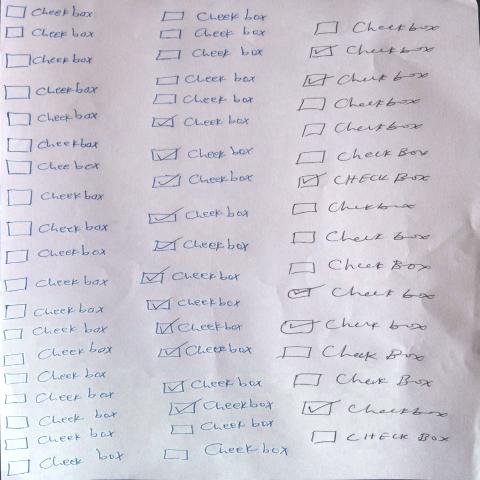 Cheekbox
Cheekbox
Cheekbox
Cheekbox
Cheekbox
Cheekbox
Chee box
Cheekbox
Cheekbox
Cheekbox
Cheekbox
Cheekbox
Cheek box
Cheekbox
Cheek box
Cheek box
Cheek box
Cheek box
Cheek box
Cheek box
Cheek box
Cheek box
Cheek box
Cheek box
Cheek box
Cheek box
Cheek box
Cheek box
Cheek box
Cheek box
Cheek box
Cheekbox
Cheekbox
Cheek box
Cheekbox
Cheek box
Cheek box
Checkbox
Check box
Check box
Check box
Checkbox
Check Box
CHECK BOX
Check box
Check box
Check Box
Check box
Check box
Check Box
Check Box
Checkbox
CHECK BOX